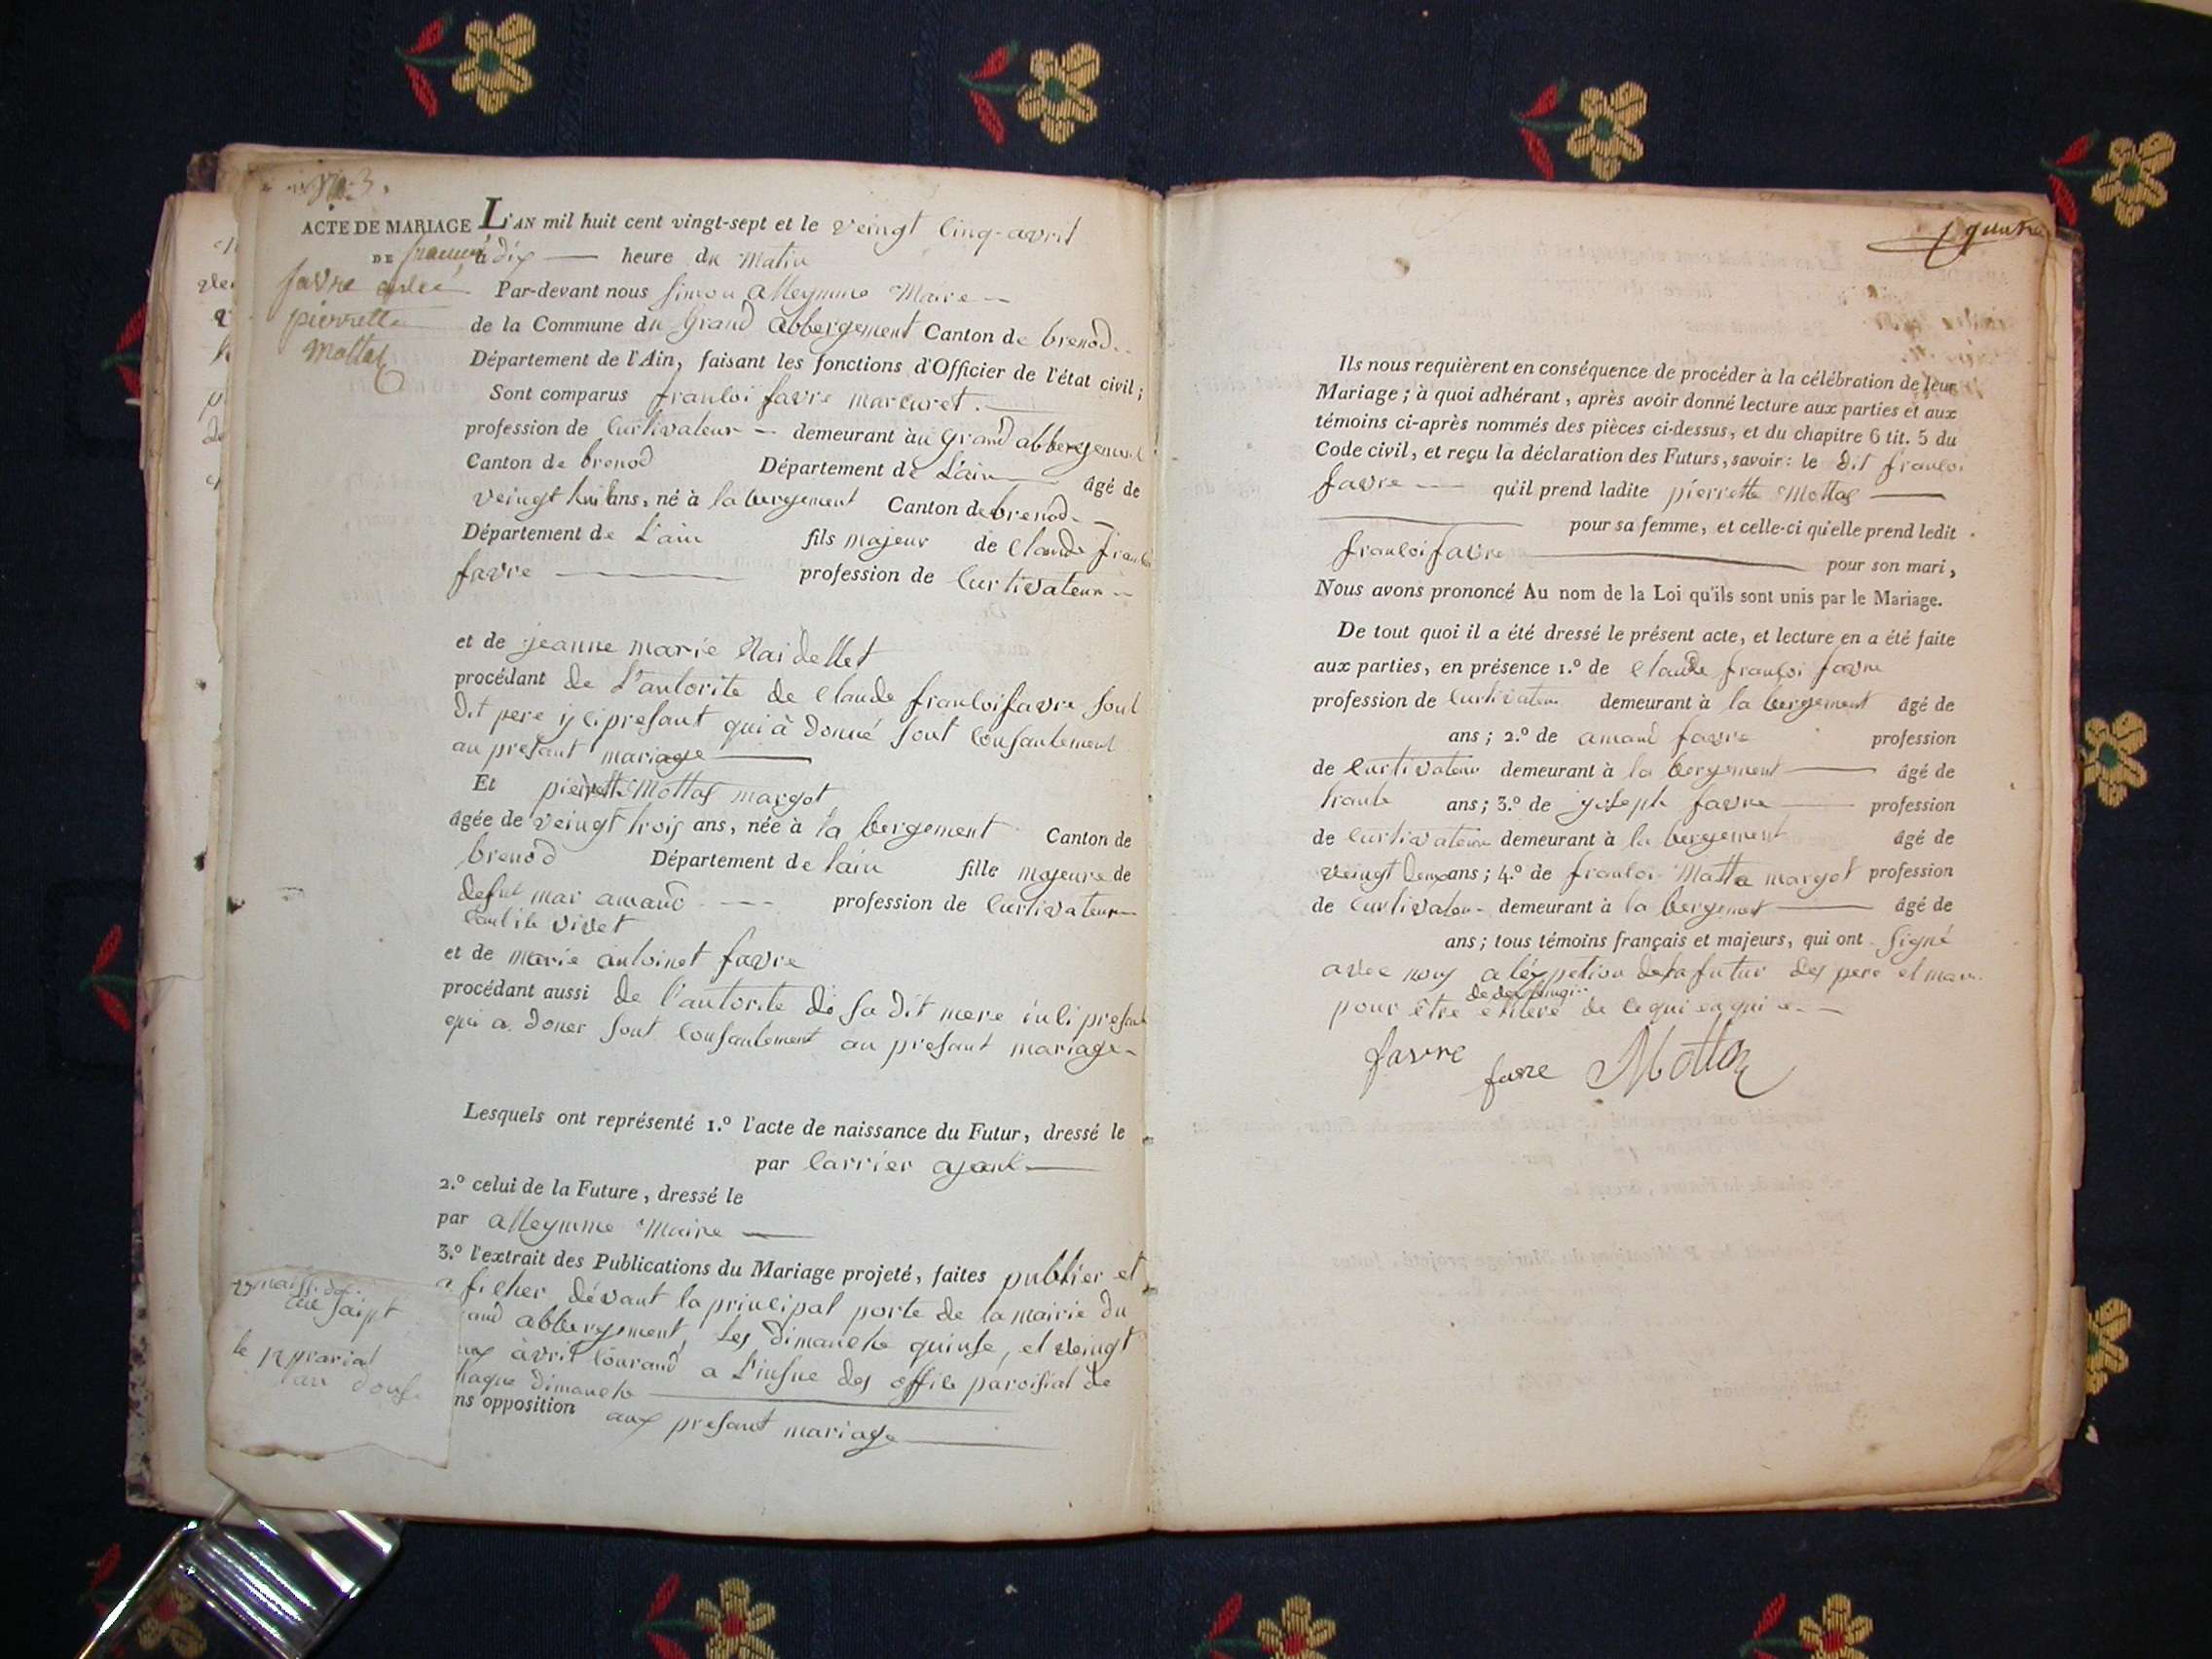 N.° 3.
ACTE DE MARIAGE
DE
favre avec
pierrette
Mottas
L'AN mil huit cent vingt-sept et le veingt cinq avril
à dix heure du Matin
Par-devant nous Simon alleymme Maire
de la Commune du Grand abbergement Canton de brenod
Département de l'Ain, faisant les fonctions d'Officier de l'état civil;
Sont comparus francoi favre marcuret
profession de Curtivateur demeurant àu grand abbergement
Canton de brenod Département de L'ain âgé de
veingt huit ans, né à la bergement Canton de brenod
Département de L'ain fils majeur de Claude
favre profession de Curtivateur
et de jeanne marie
procédant de L'autorite de Claude francoi favre sout
dit pere ycipresant qui à donné sont consantement
au presant mariage
Et pierrette Mottas margot
âgée de veingt trois ans, née à la bergement Canton de
brenod Département de lain fille majeure de
defut mar amand profession de Curtivateur
vivet
et de marie antoinet favre
procédant aussi de l'autorite de sa dit mere ici presant
qui a doner sont consantement au presant mariage
Lesquels ont représenté 1.° l'acte de naissance du Futur, dressé le
par Carrier ajant
2.° celui de la Future, dressé le
par alleymme Maire
3.° l'extrait des Publications du Mariage projeté, faites publier et
a ficher dévant la principal porte de la mairie du
and abbergement, les dimanche quinse, et veingt
eux àvril courand a L'insue des office paroisial de
haque dimanche
ns opposition aux presant mariage
le 12 prarial
an douse
Ils nous requièrent en conséquence de procéder à la célébration de leur
Mariage; à quoi adhérant, après avoir donné lecture aux parties et aux
témoins ci-après nommés des pièces ci-dessus, et du chapitre 6 tit. 5 du
Code civil, et reçu la déclaration des Futurs, savoir: le dit francoi
favre qu'il prend ladite pierrette Mottas
pour sa femme, et celle-ci qu'elle prend ledit
francoi favre pour son mari,
Nous avons prononcé Au nom de la Loi qu'ils sont unis par le Mariage.
De tout quoi il a été dressé le présent acte, et lecture en a été faite
aux parties, en présence 1.° de Claude francoi favre
profession de Curtivateur demeurant à la bergement âgé de
ans; 2.° de amand favre profession
de Curtivateur demeurant à la bergement âgé de
trante ans; 3.° de joseph favre profession
de Curtivateur demeurant à la bergement âgé de
veingt deux ans; 4.° de francoi Motta margot profession
de Curtivateur demeurant à la bergement âgé de
ans; tous témoins français et majeurs, qui ont signé
avec nous de la futur des pere et mere
pour être de ce qui
favre favre Mottaz